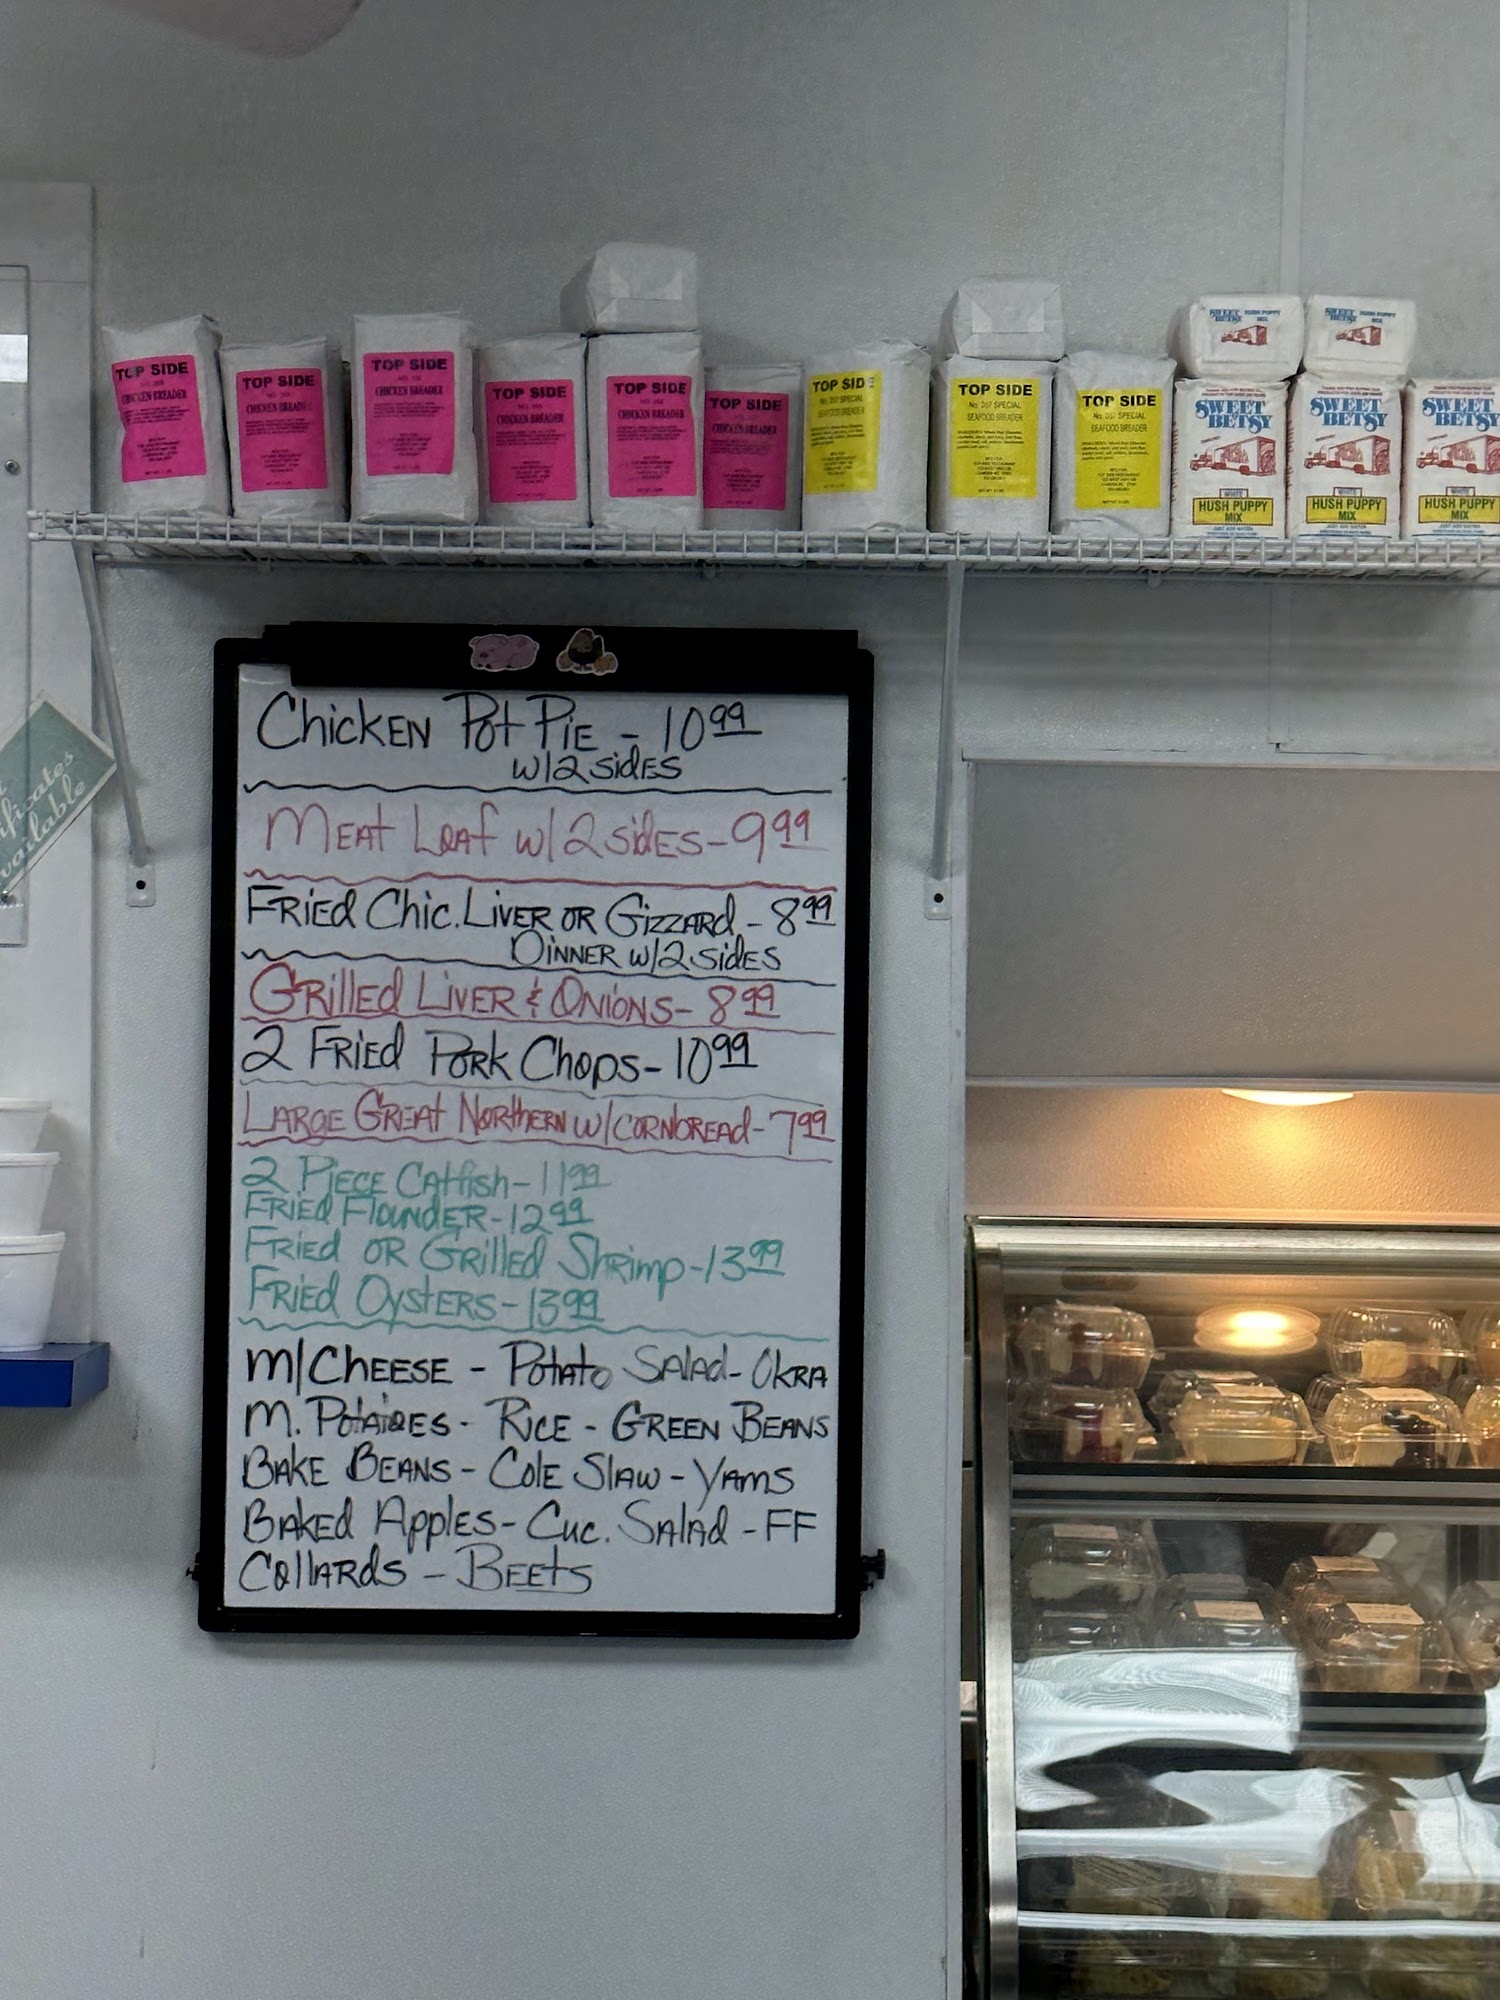 TOP SIDE
CHICKEN BREADER
TOP SIDE
CHICKEN BREADER
TOP SIDE
CHICKEN BREADER
TOP SIDE
CHICKEN BREADER
TOP SIDE
CHICKEN BREADER
TOP SIDE
CHICKEN BREADER
TOP SIDE
No. 207 SPECIAL
SEAFOOD BREADER
TOP SIDE
No. 207 SPECIAL
SEAFOOD BREADER
TOP SIDE
No. 207 SPECIAL
SEAFOOD BREADER
SWEET BETSY HUSH PUPPY MIX
SWEET BETSY HUSH PUPPY MIX
SWEET
BETSY
WHITE
HUSH PUPPY
MIX
JUST ADD WATER
SWEET
BETSY
WHITE
HUSH PUPPY
MIX
JUST ADD WATER
SWEET
BETSY
WHITE
HUSH PUPPY
MIX
JUST ADD WATER
Chicken Pot Pie - 10.99
w/2 sides
Meat Loaf w/2 sides - 9.99
Fried Chic. Liver or Gizzard - 8.99
Dinner w/2 sides
Grilled Liver & Onions - 8.99
2 Fried Pork Chops - 10.99
Large Great Northern w/cornbread - 7.99
2 Piece Catfish - 11.99
Fried Flounder - 12.99
Fried or Grilled Shrimp - 13.99
Fried Oysters - 13.99
M/Cheese - Potato Salad - Okra
M. Potatoes - Rice - Green Beans
Bake Beans - Cole Slaw - Yams
Baked Apples - Cuc. Salad - FF
Collards - Beets